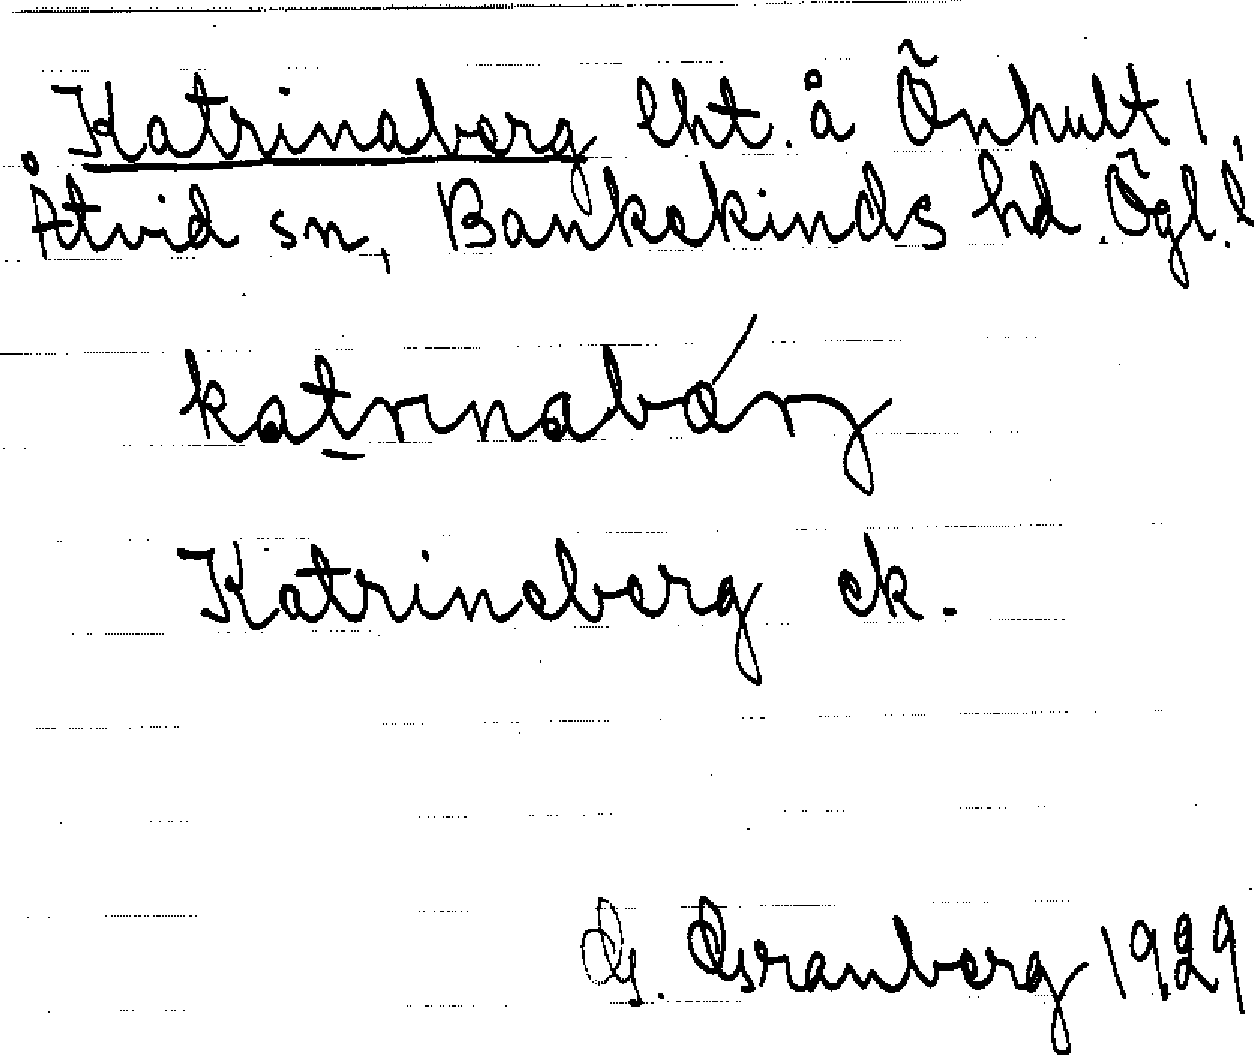 Katrinaberg lht. å Önhult 1,
Åtvid sn, Bankekinds hd. Ögl. l.
katrinabárg
Katrineberg ek.
G. Granberg 1929